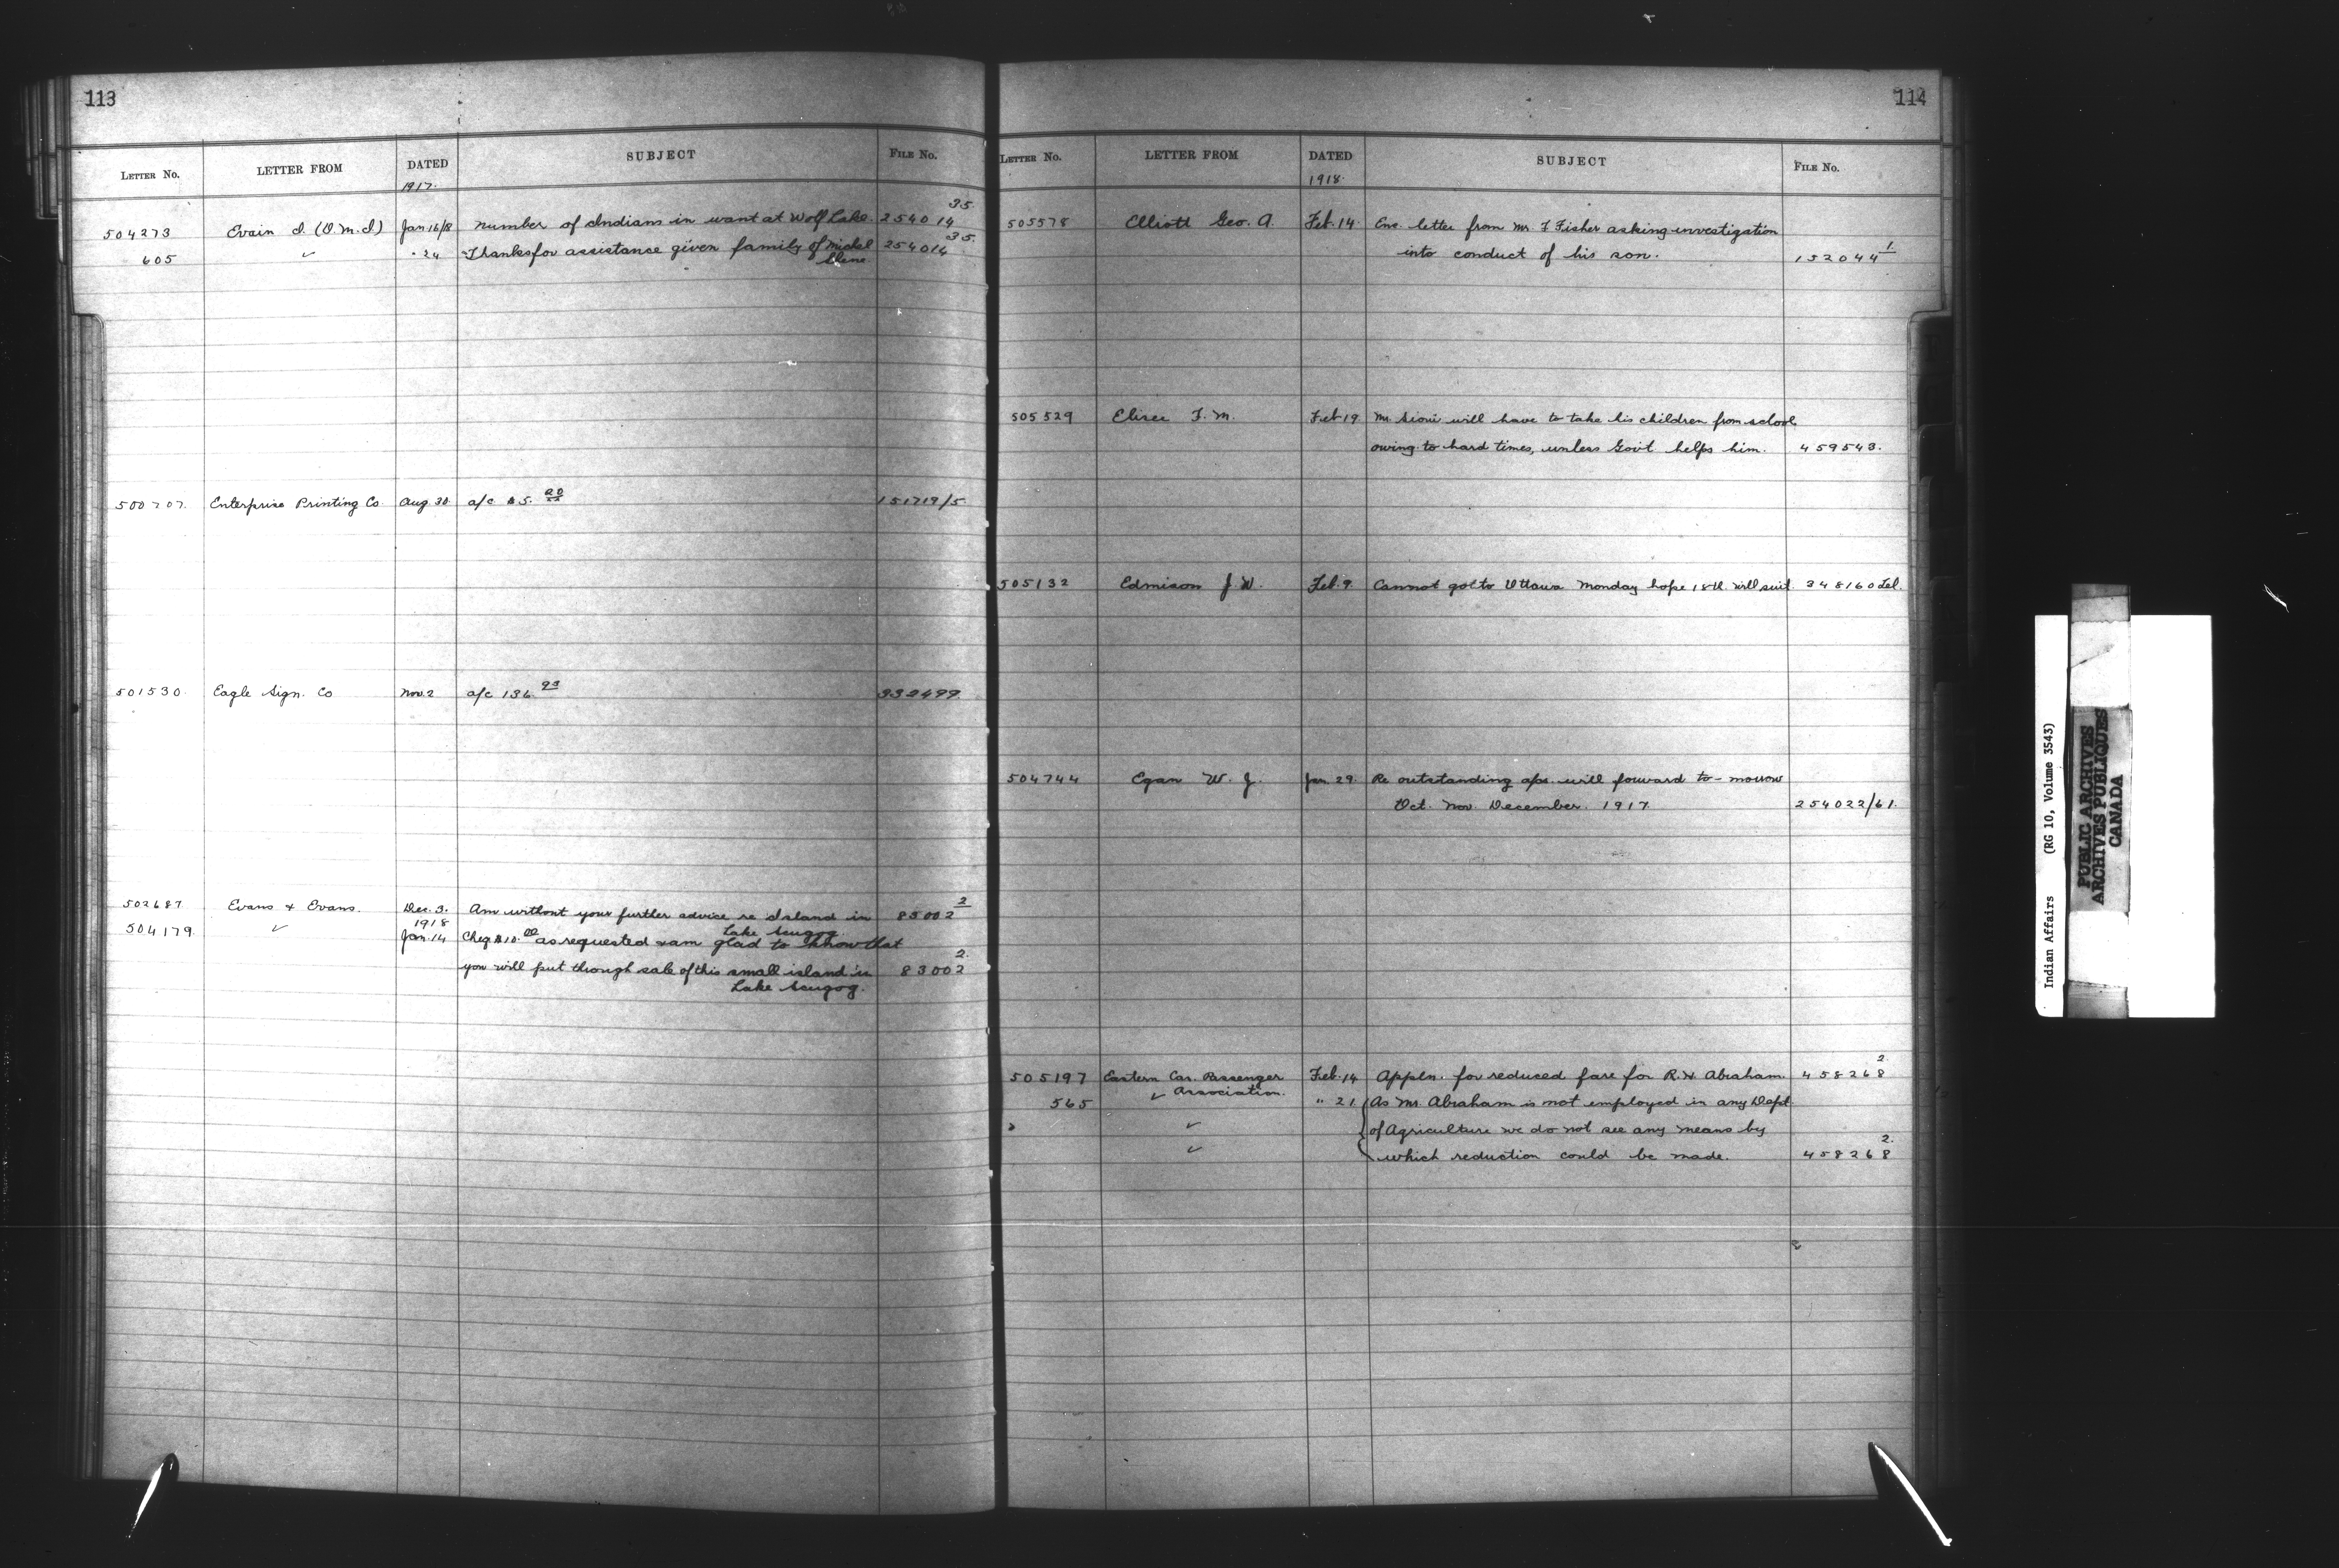 113
LETTER NO. LETTER FROM DATED SUBJECT FILE NO.
1917.
504273 Evain I. (O.M.I.) Jan 16/8 Number of Indians in want at Wolf Lake. 254014 35.
605 ✓ " 24 Thanks for assistance given family of Michel 254014 35.
500707. Enterprise Printing Co. Aug 30. a/c $5. 151719/5.
501530. Eagle Sign. Co Nov. 2 a/c 136. 332499.
502687 Evans & Evans. Dec. 3. Am without your further advice re Island in 85002 2
Lake Scugog.
1918
504179. ✓ Jan. 14 Cheq $10.00 as requested & am glad to know that
you will put through sale of this small island in 83002 2.
Lake Scugog.
114
LETTER NO. LETTER FROM DATED SUBJECT FILE NO.
1918.
505578 Elliott Geo. A. Feb. 14. Enc. letter from Mr. F Fisher asking investigation
into conduct of his son. 152044 1
505529 Elisee F. M. Feb 19 Mr. Sioui will have to take his children from school
owing to hard times, unless Govt helps him. 459543.
505132 Edmison J. W. Feb. 9. Cannot go to Ottawa Monday hope 18th. will suit. 348160 Tel.
504744 Egan W. J. Jan. 29. Re outstanding a/cs. will forward to-morrow
Oct. Nov. December. 1917. 254022/61.
505197 Eastern Can. Passenger Feb. 14 Appln. for reduced fare for R.H. Abraham. 458268 2.
Association.
565 ✓ " 21. As Mr. Abraham is not employed in any Dept.
✓ of Agriculture we do not see any means by
✓ which reduction could be made. 458268 2.
Indian Affairs (RG 10, Volume 3543)
PUBLIC ARCHIVES
ARCHIVES PUBLIQUES
CANADA